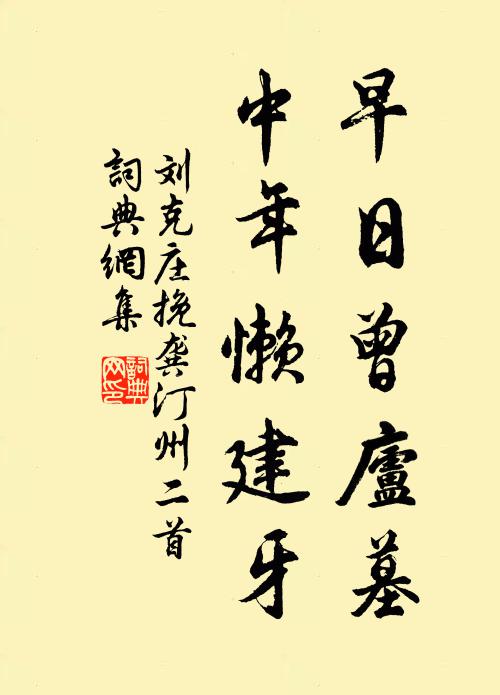 早日曾廬墓
中年懒建牙
刘克庄挽龚汀州二首
詞典網集
詞典网印